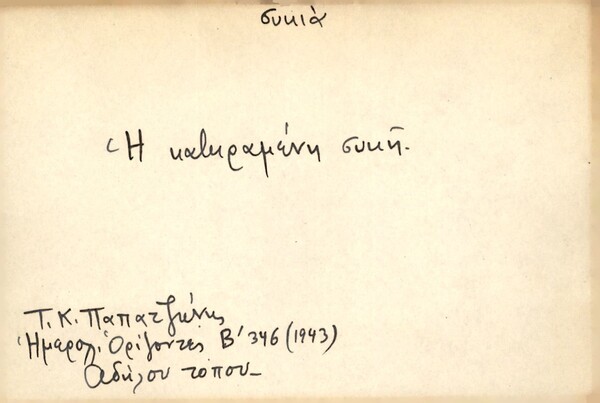 συκιὰ
Ἡ κατηραμένη συκῆ.
Τ. Κ. Παπατζώνης
Ἡμερολ. Ὁρίζοντες Β' 346 (1943)
Ἀδήλου τόπου